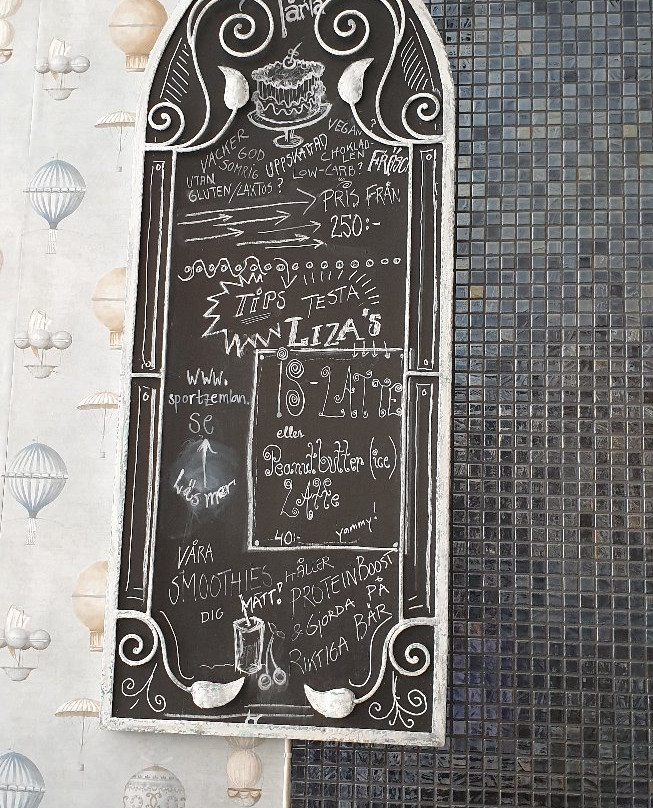 Tårta
VACKER
GOD
SOMRIG
UPPSKATTAD
VEGAN?
CHOKLAD-
LEN
FRÄSCH
UTAN
GLUTEN/LAKTOS?
LOW-CARB?
PRIS FRÅN
250:-
TIPS
TESTA
LIZA'S
IS-LATTE
eller
Peanutbutter (ice)
LATTE
40:-
yommy!
www.
sportzeman.
se
Läs mer
VÅRA
SMOOTHIES
HÅLLER
DIG
MÄTT?
PROTEINBOOST
& GJORDA PÅ
RIKTIGA BÄR